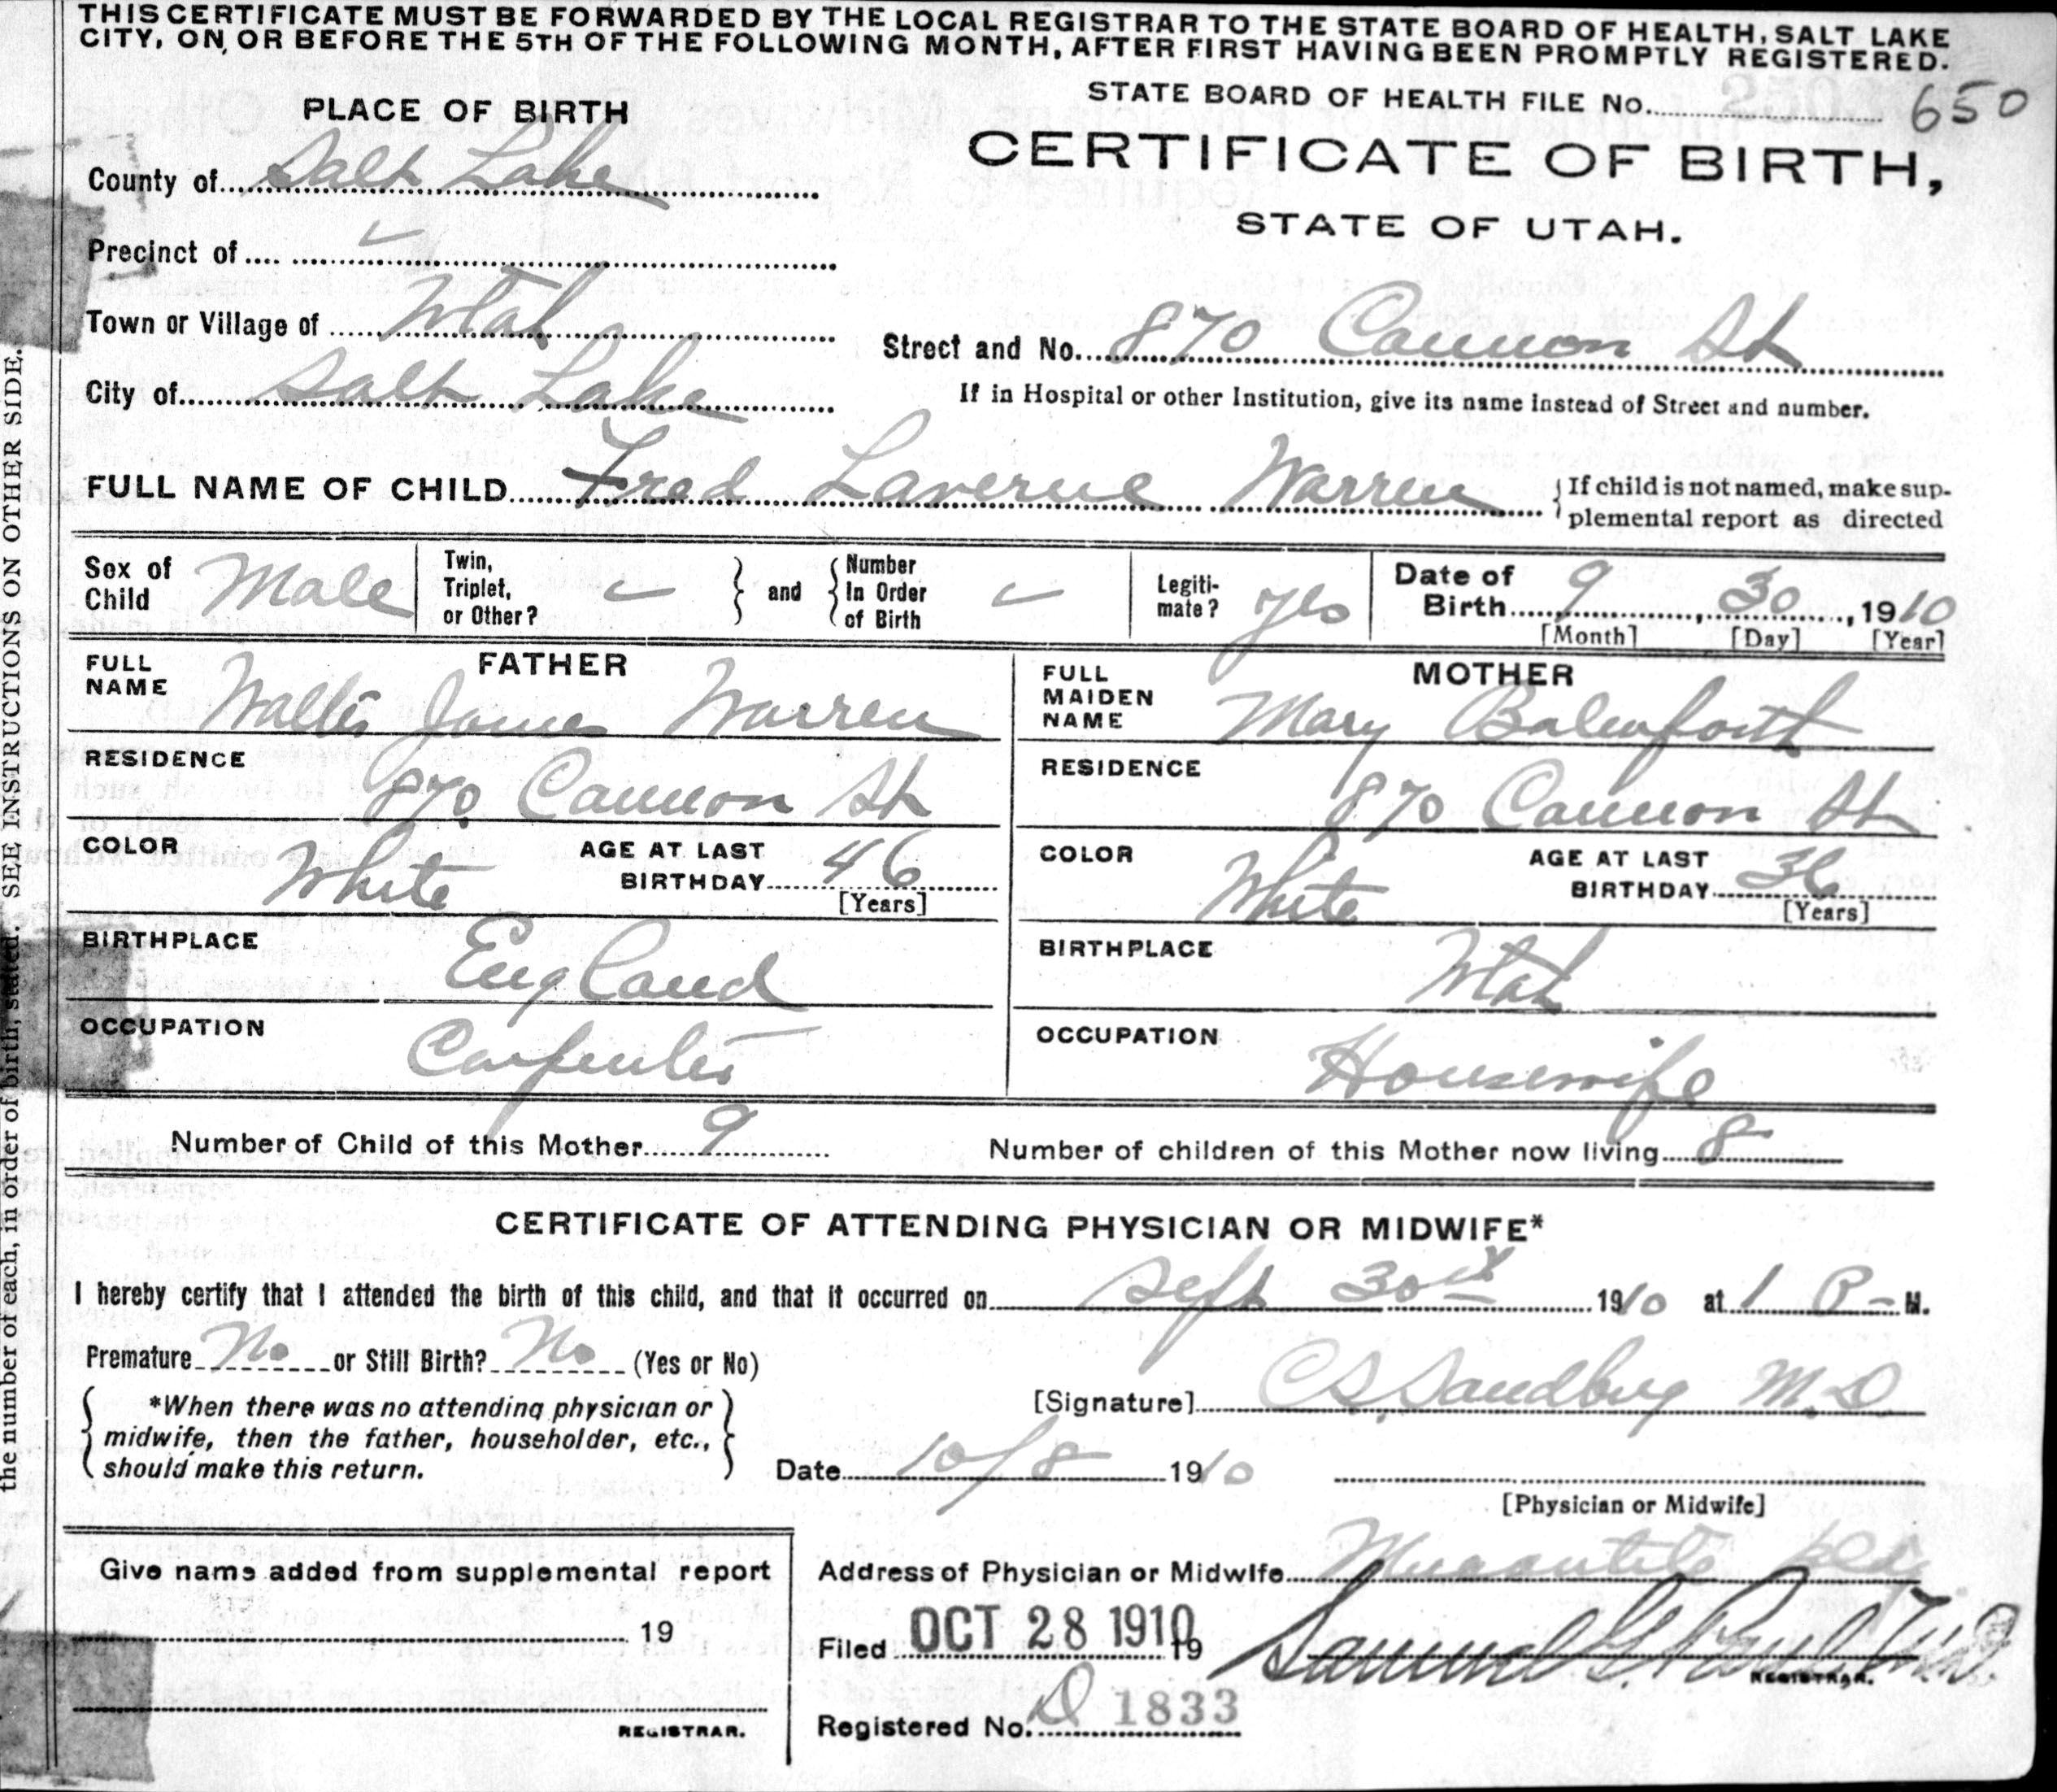 THIS CERTIFICATE MUST BE FORWARDED BY THE LOCAL REGISTRAR TO THE STATE BOARD OF HEALTH, SALT LAKE
CITY, ON OR BEFORE THE 5TH OF THE FOLLOWING MONTH, AFTER FIRST HAVING BEEN PROMPTLY REGISTERED.
STATE BOARD OF HEALTH FILE No. 650
PLACE OF BIRTH
CERTIFICATE OF BIRTH,
STATE OF UTAH.
County of Salt Lake
Precinct of
Town or Village of Utah
Street and No. 870 Cannon St
City of Salt Lake
If in Hospital or other Institution, give its name instead of Street and number.
FULL NAME OF CHILD Fred Laverne Warren
If child is not named, make sup-
plemental report as directed
Sex of Child Male
Twin, Triplet, or Other? and Number In Order of Birth
Legiti-mate? yes
Date of Birth 9, 30, 1910
[Month] [Day] [Year]
FATHER
FULL NAME Walter James Warren
RESIDENCE 870 Cannon St
COLOR White AGE AT LAST BIRTHDAY 46
[Years]
BIRTHPLACE England
OCCUPATION Carpenter
MOTHER
FULL MAIDEN NAME Mary
RESIDENCE 870 Cannon St
COLOR White AGE AT LAST BIRTHDAY 36
[Years]
BIRTHPLACE Utah
OCCUPATION Housewife
Number of Child of this Mother 9 Number of children of this Mother now living 8
CERTIFICATE OF ATTENDING PHYSICIAN OR MIDWIFE*
I hereby certify that I attended the birth of this child, and that it occurred on Sept 30th 1910 at 1 P-M.
Premature No or Still Birth? No (Yes or No)
*When there was no attending physician or
midwife, then the father, householder, etc.,
should make this return.
[Signature] C.S. Sandberg M.D
Date 10/8 1910
[Physician or Midwife]
Give name added from supplemental report
19
REGISTRAR.
Address of Physician or Midwife Mercantile Bldg
Filed OCT 28 1910 19 Samuel G. Paul M.D.
REGISTRAR.
Registered No. D 1833
the number of each, in order of birth, stated. SEE INSTRUCTIONS ON OTHER SIDE.